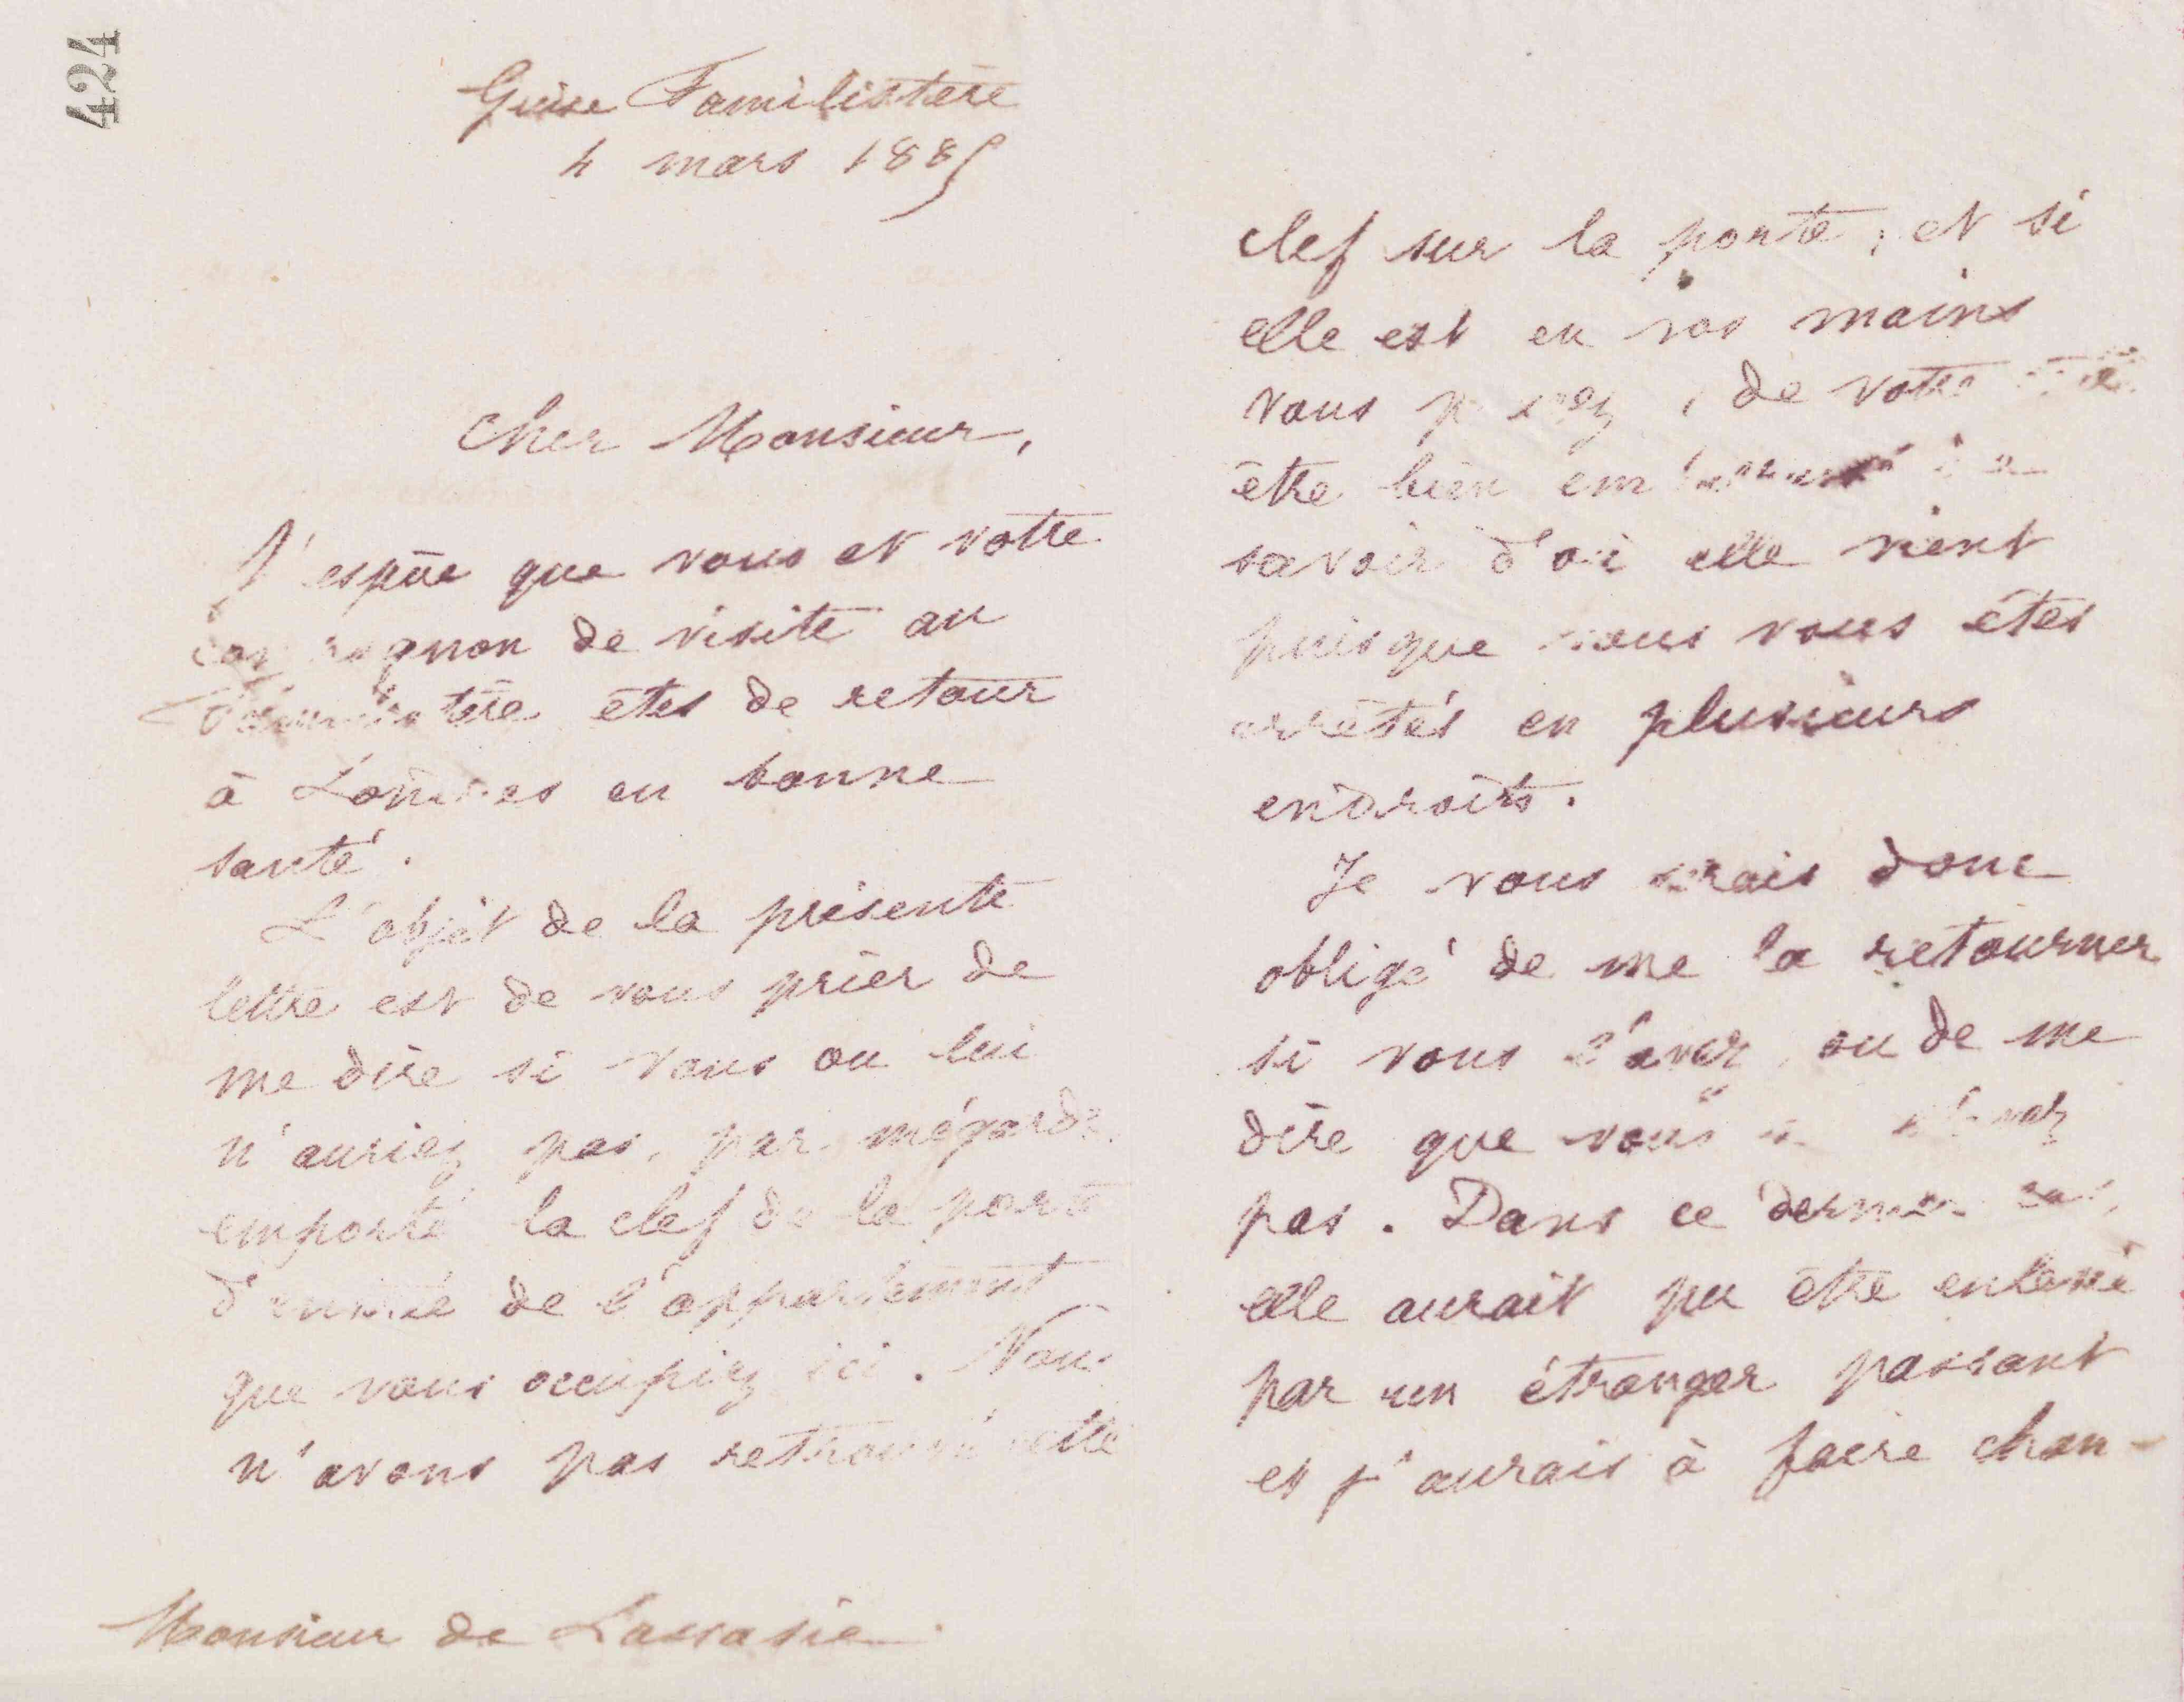 424
Guise Familistère
4 mars 1885
Cher Monsieur,
J'espère que vous et votre
compagnon de visite au
Familistère êtes de retour
à Londres en bonne
santé.
L'objet de la présente
lettre est de vous prier de
me dire si vous ou lui
n'auriez pas, par mégarde,
emporté la clef de la porte
d'entrée de l'appartement
que vous occupiez ici. Nous
n'avons pas retrouvé cette
Monsieur de
clef sur la porte; et si
elle est en vos mains
vous , de votre
être bien embarrassé
savoir d'où elle vient
puisque vous vous êtes
arrêtés en plusieurs
endroits.
Je vous serais donc
obligé de me la retourner
si vous l'avez, ou de me
dire que vous ne l'avez
pas. Dans ce dernier cas,
elle aurait pu être enlevée
par un étranger passant
et j'aurais à faire chan-